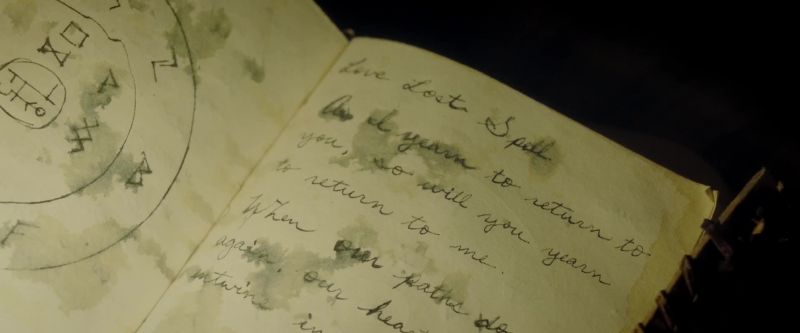 Love Lost Spell
As I yearn to return to
you, so will you yearn
to return to me.
When our paths do
again, our
entwine in